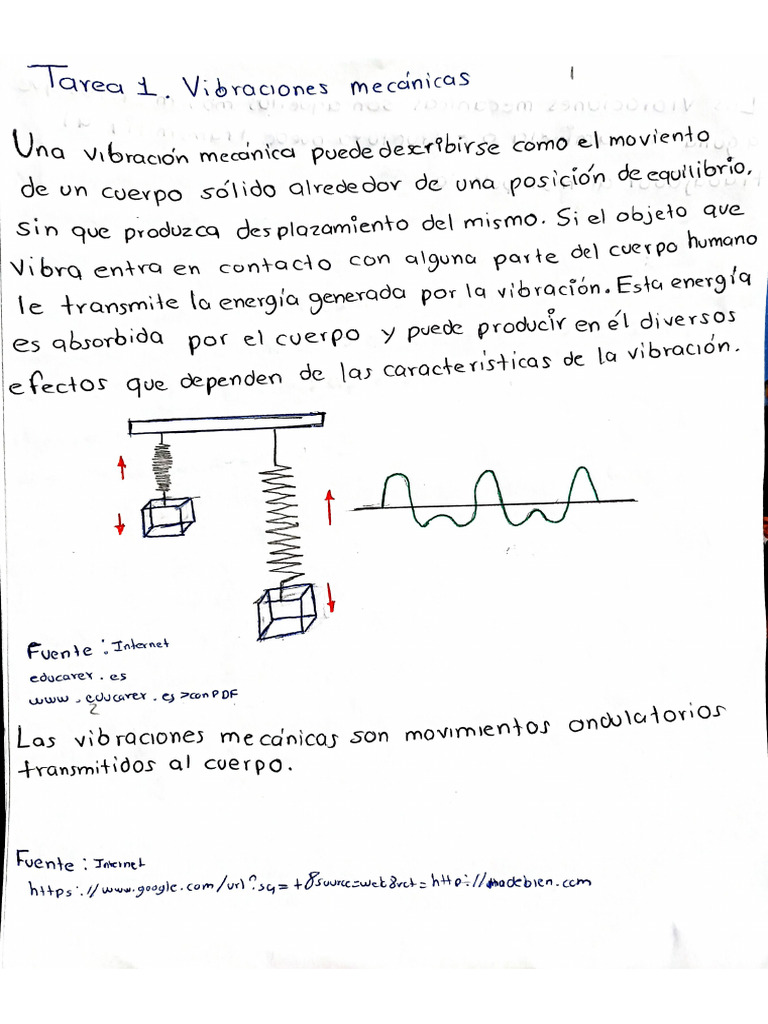 Tarea 1. Vibraciones mecánicas
1
Una vibración mecánica puede dexribirse como el moviento
de un cuerpo sólido alrededor de una posición de equilibrio,
sin que produzca desplazamiento del mismo. Si el objeto que
vibra entra en contacto con alguna parte del cuerpo humano
le transmite la energía generada por la vibración. Esta energía
es absorbida por el cuerpo y puede producir en él diversos
efectos que dependen de las características de la vibración.
Fuente: Internet
educarex.es
www.educarex.es>conPDF
2
Las vibraciones mecánicas son movimientos ondulatorios
transmitidos al cuerpo.
Fuente: Internet
https://www.google.com/url?sq=